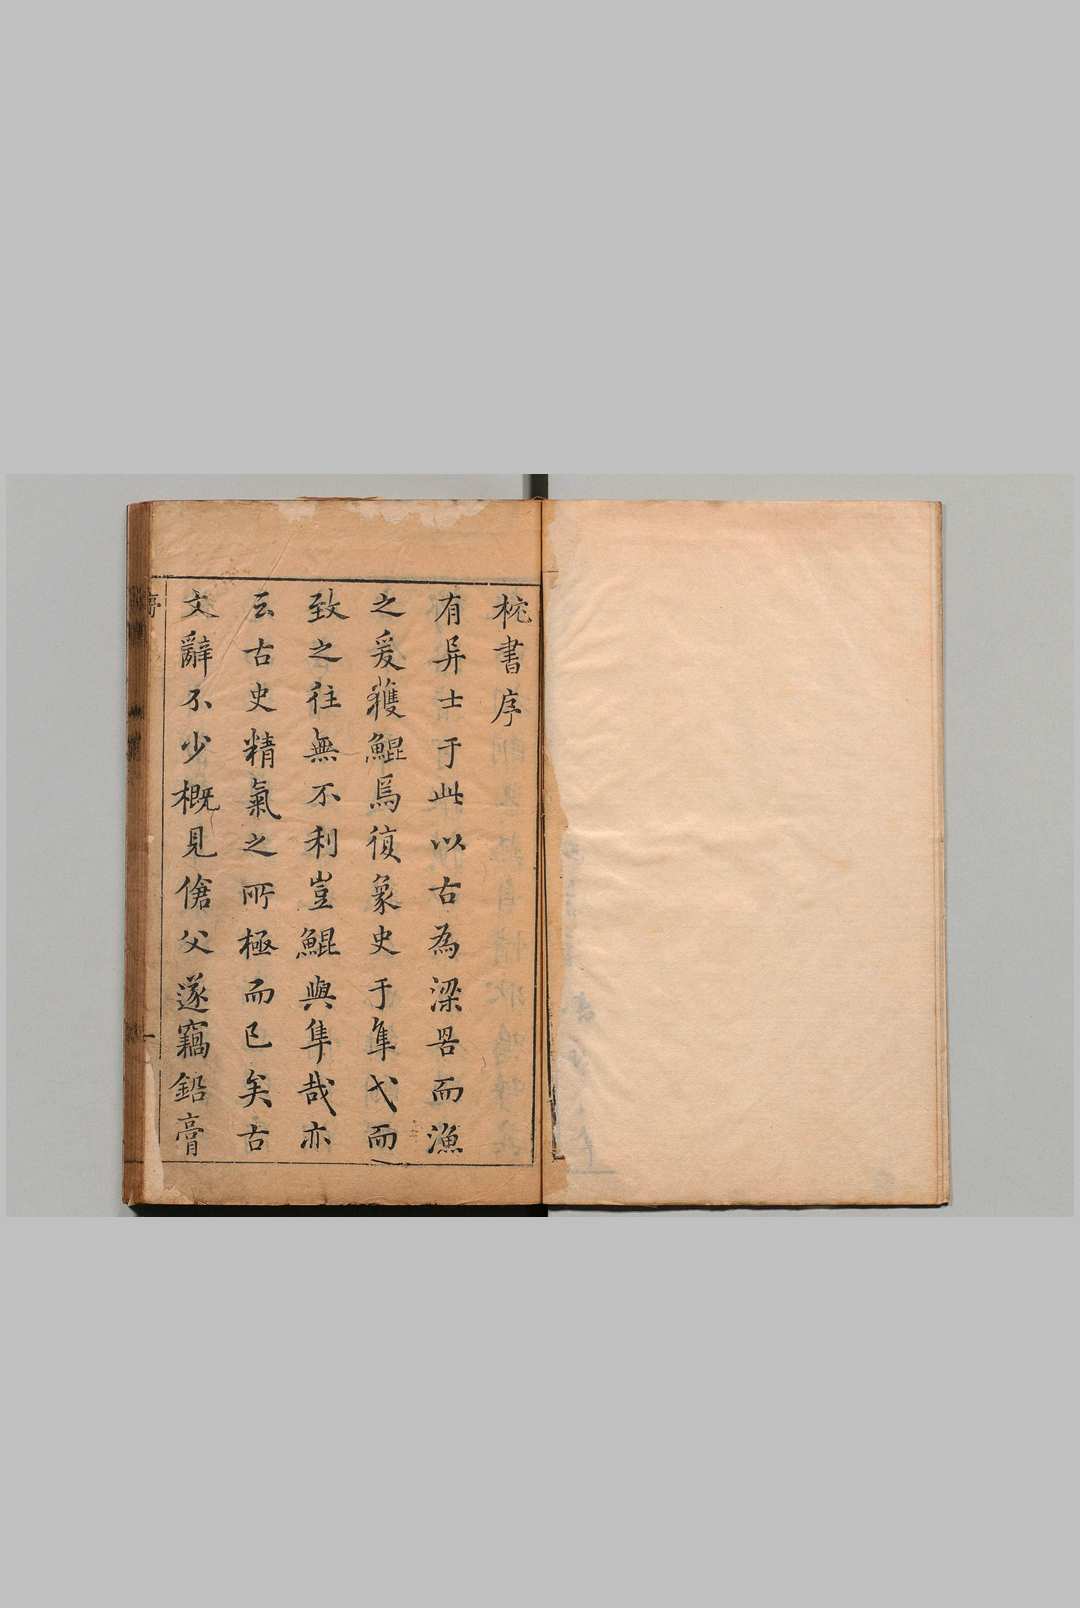 枕書序
有异士于此以古為梁罟而漁
之爰獲鯤焉復彙史于隼弋而
致之往無不利豈鯤與隼哉亦
云古史精氣之所極而已矣古
文辭不少概見傖父遂竊鉛膏